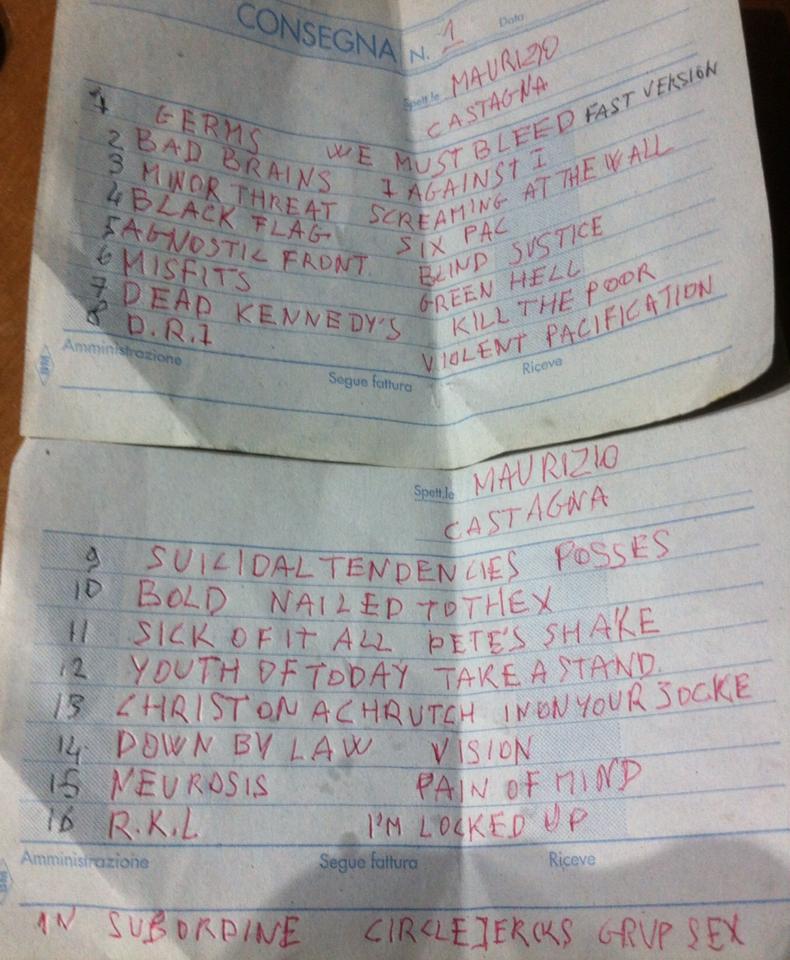 CONSEGNA N. 1 Data
Spett.le MAURIZIO
CASTAGNA
1 GERMS WE MUST BLEED FAST VERSION
2 BAD BRAINS I AGAINST I
3 MINOR THREAT SCREAMING AT THE WALL
4 BLACK FLAG SIX PAC
5 AGNOSTIC FRONT BLIND SUSTICE
6 MISFITS GREEN HELL
7 DEAD KENNEDY'S KILL THE POOR
8 D.R.I VIOLENT PACIFICATION
Amministrazione Segue fattura Riceve
Spett.le MAURIZIO
CASTAGNA
9 SUICIDAL TENDENCIES POSSES
10 BOLD NAILED TO THE X
11 SICK OF IT ALL PETE'S SHAKE
12 YOUTH OF TODAY TAKE A STAND.
13 CHRIST ON A CHRUTCH IN ON YOUR JOCKE
14 DOWN BY LAW VISION
15 NEUROSIS PAIN OF MIND
16 R.K.L I'M LOCKED UP
Amministrazione Segue fattura Riceve
IN SUBORDINE CIRCLE JERCKS GRUP SEX